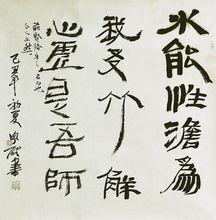 水能性澹為
我友竹解
心虛是吾師
己丑年初夏
書